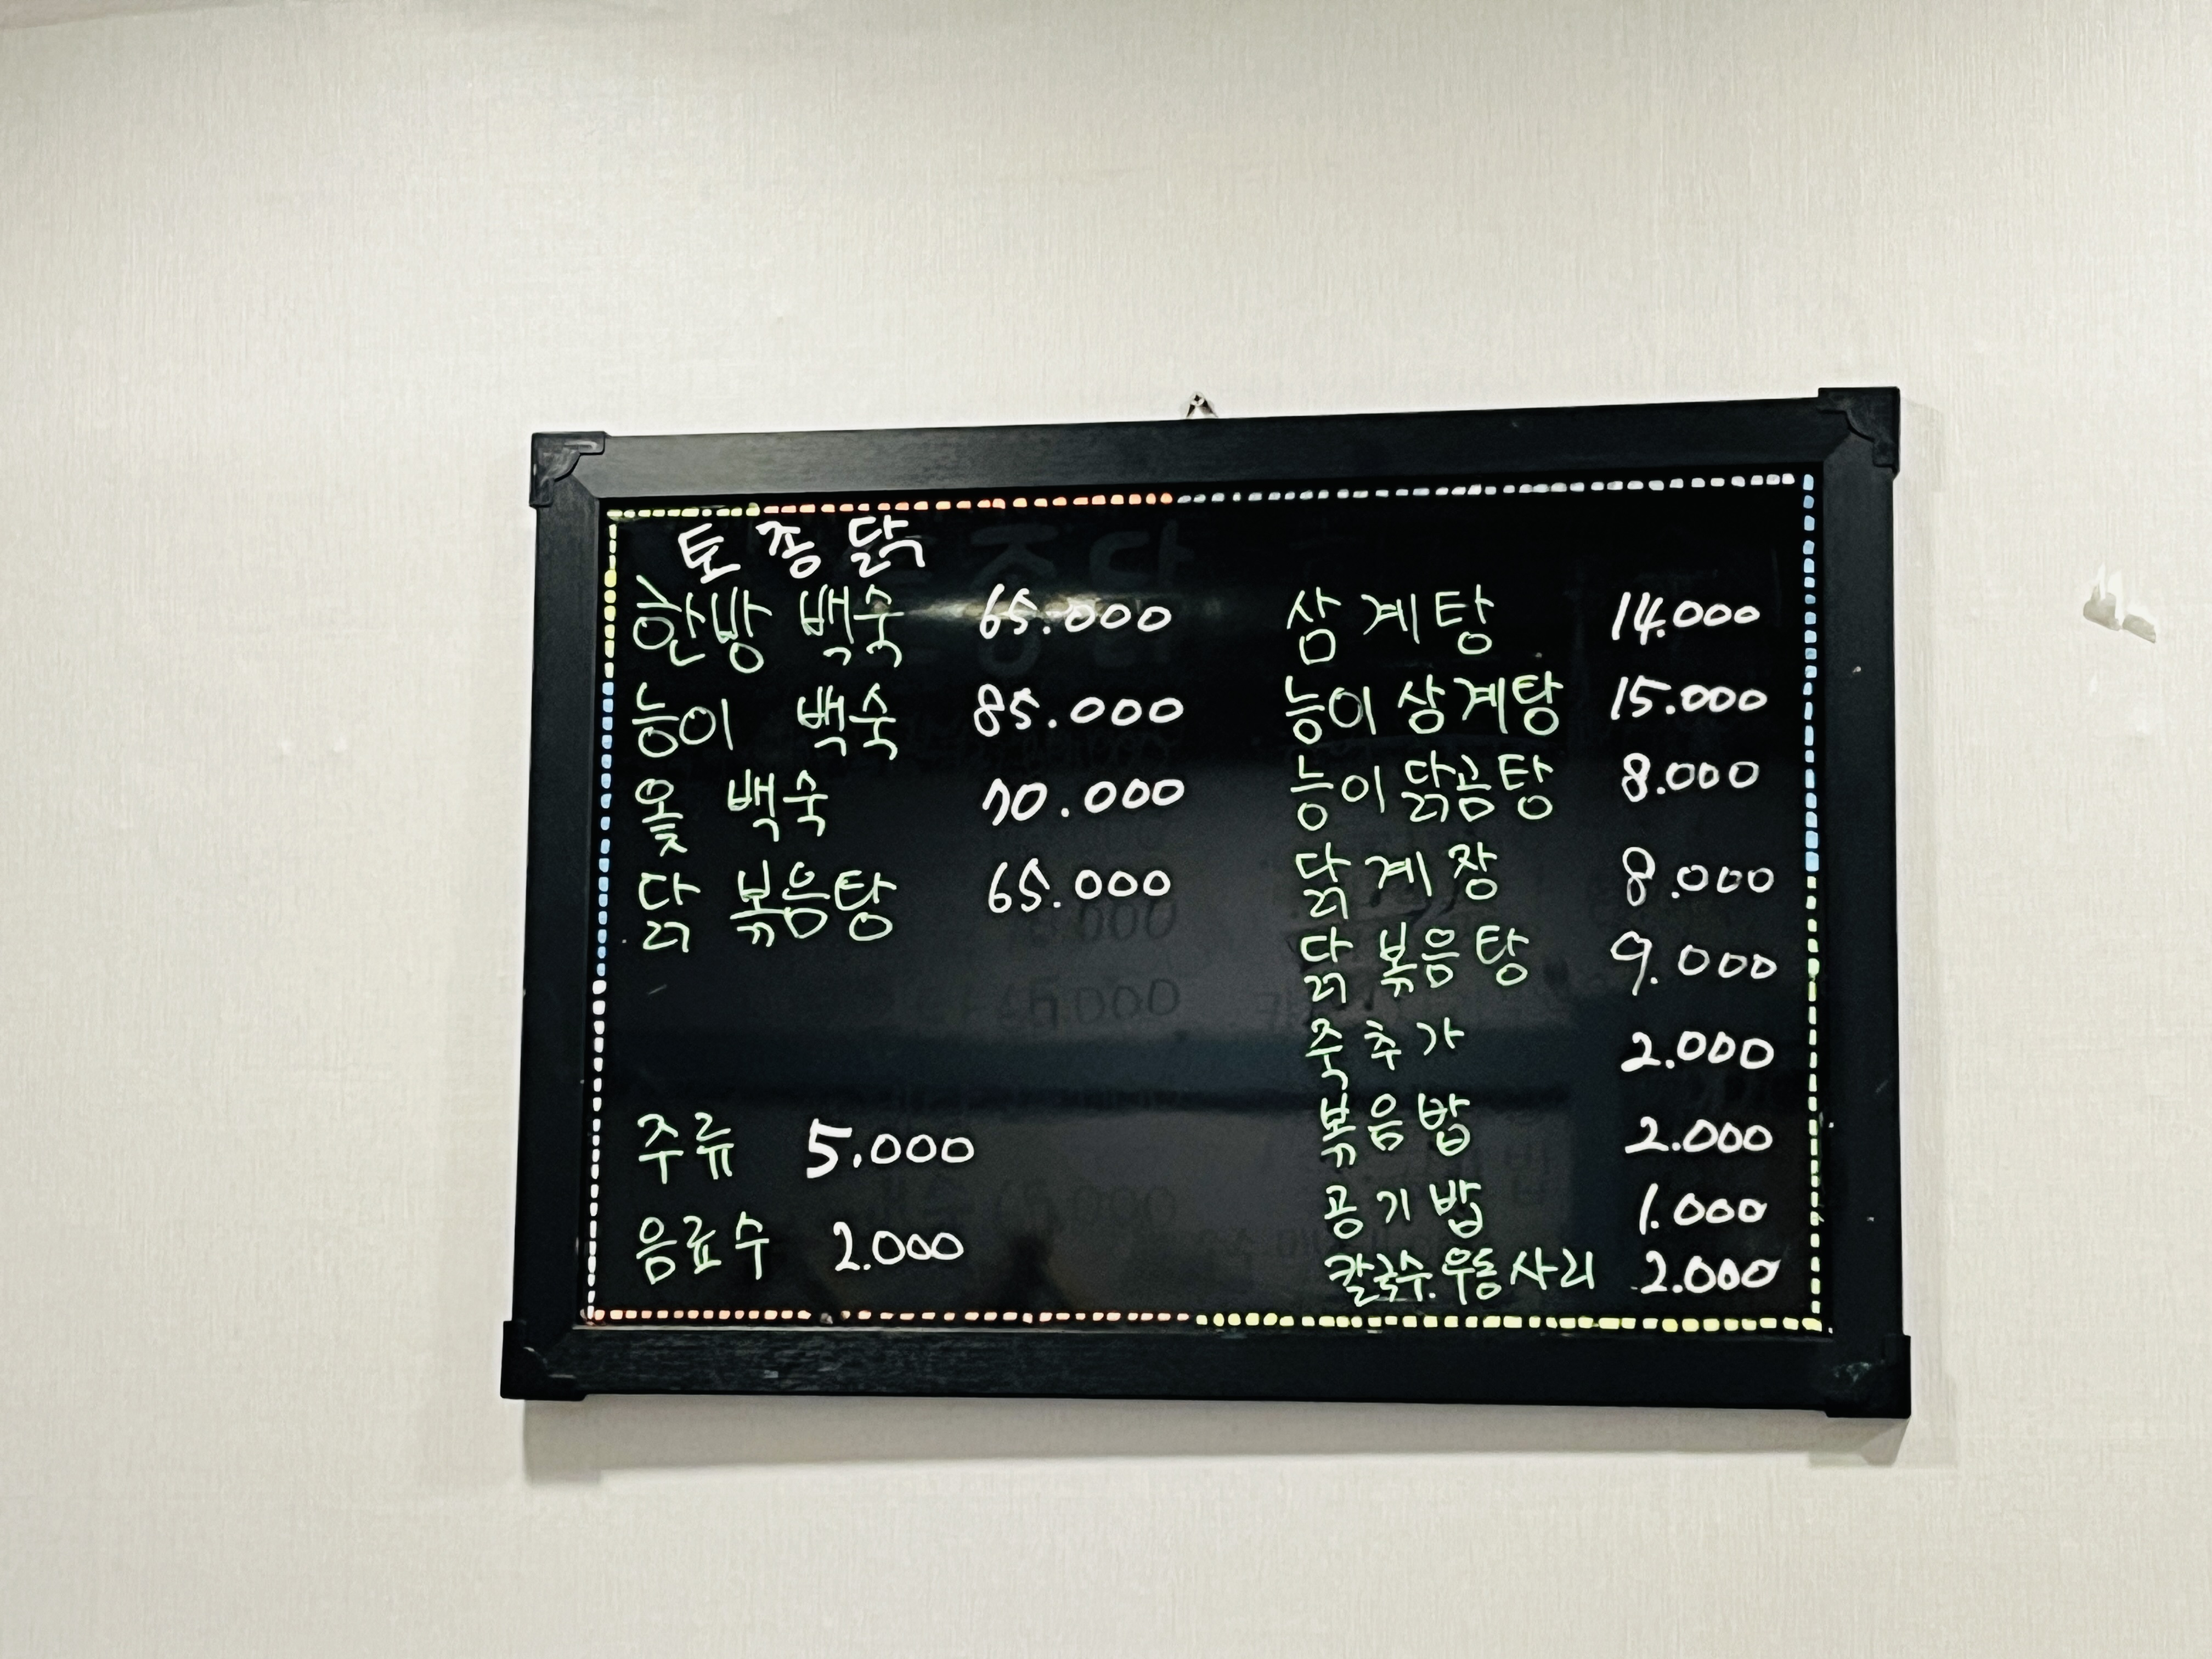 토종닭
한방 백숙 65.000
능이 백숙 85.000
옻 백숙 70.000
닭 볶음탕 65.000
주류 5.000
음료수 2.000
삼계탕 14.000
능이 삼계탕 15.000
능이 닭곰탕 8.000
닭계장 8.000
닭 볶음탕 9.000
죽추가 2.000
볶음밥 2.000
공기밥 1.000
칼국수.우동사리 2.000